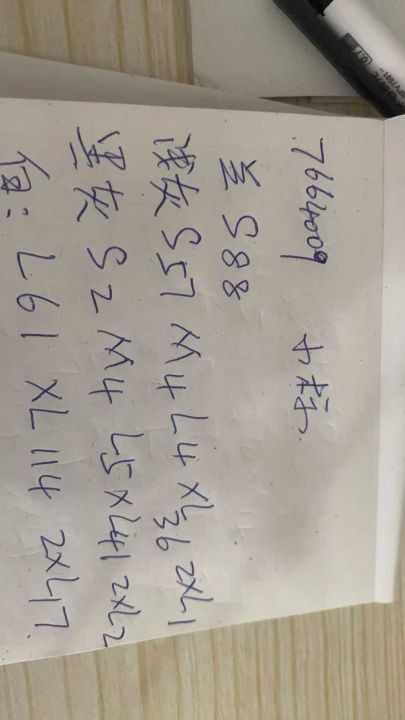 7664009
兰 S88
浅灰 S57 M4 L4 XL36 2XL1
黑灰 S2 M4 L5 XL41 2XL2
L61 XL114 2XL17